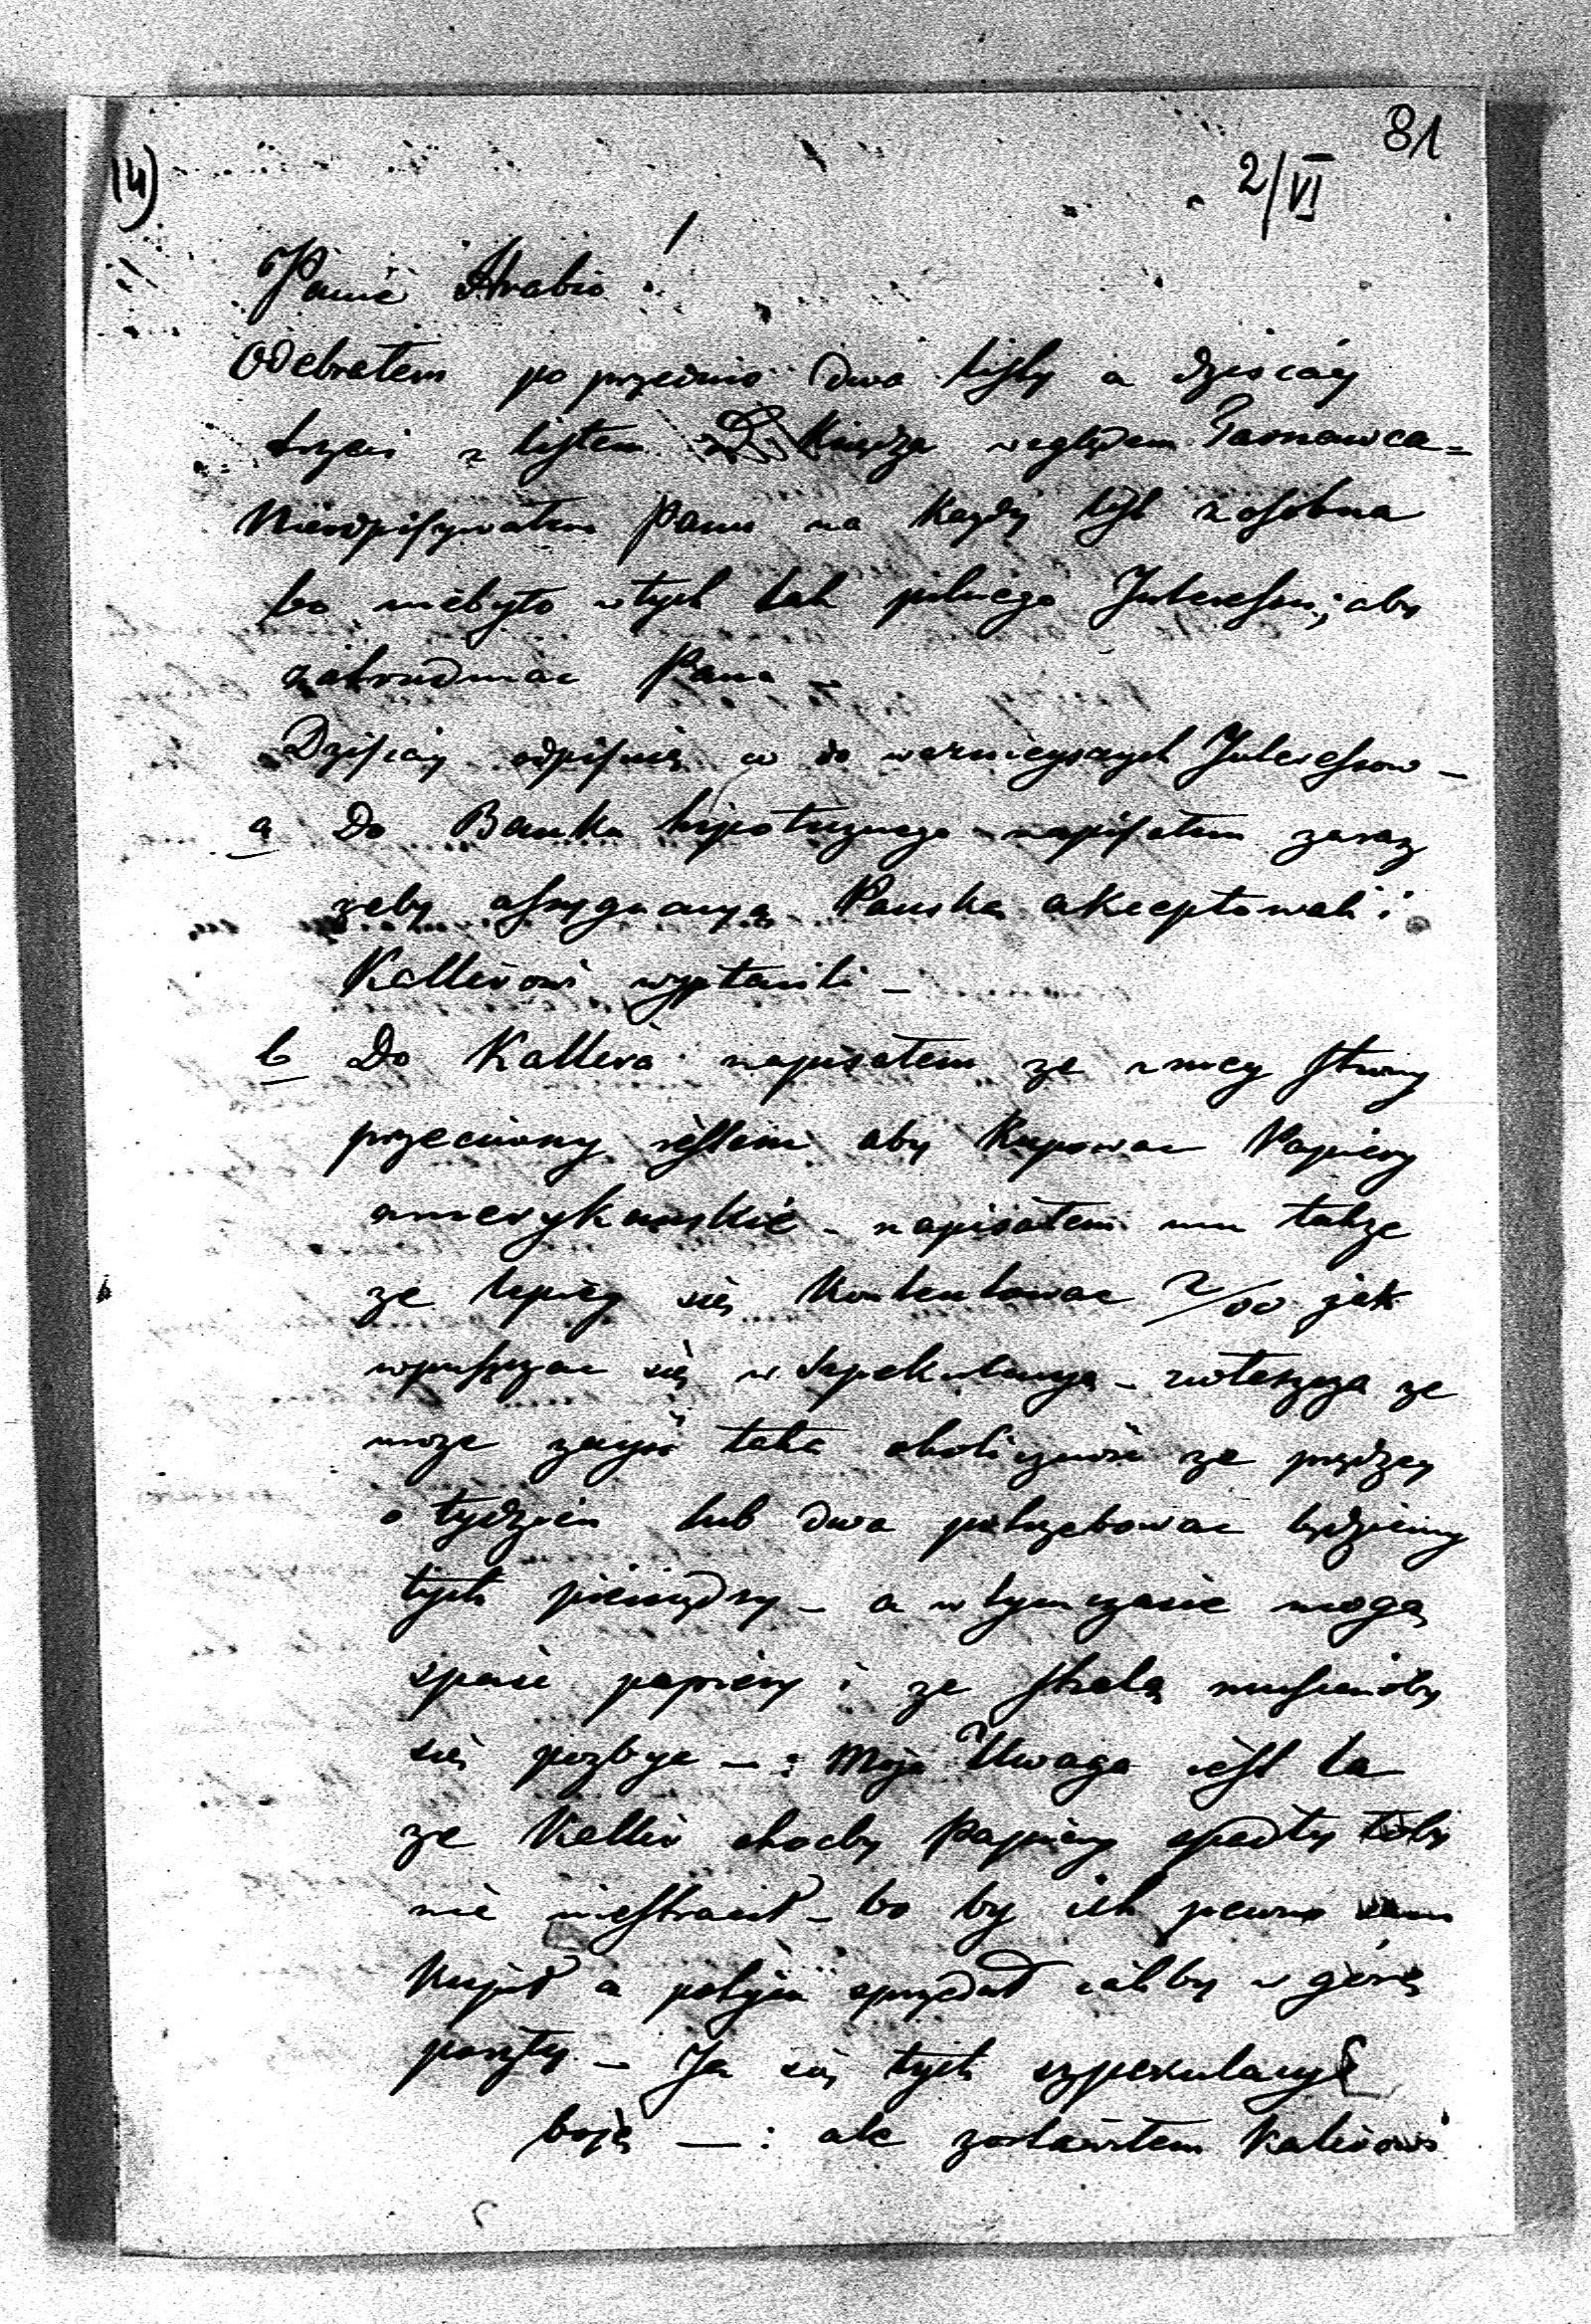 81
(4)
2/VI
Panie Hrabio !
Odebrałem poprzednio dwa listy a dzisiay
trzeci z listem Xiędza względem Tarnawca =
Nieodpisywałem Panu na każdy list z osobna
bo niebyło w tych tak pilnego Interessu; aby
zatrudniac Pana –
Dzisiay odpisuię co do waznieyszych Interessow –
a Do Banku hipotecznego napisałem zaraz
zeby assygnacyą Panską akceptowali i
Kallirowi wypłacili –
b Do Kallira napisałem ze z mey strony
przeciwny iestem aby kupowac Papiery
amerykanskie – napisałem mu takze
ze lepiey się kontentowac 2/00 jak
wpuszczac się w Szpekulacyą – zwłaszcza ze
moze zayść taka okolicznośc ze prędzey
o tydzien lub dwa potrzebowac będziemy
tych pieniędzy – a w tym czasie mogą
spaśc papiery i ze stratą musianoby
się pozbyc – : Moja Uwaga iest ta
ze Kallir chocby Papiery spadły toby
nie niestracił – bo by ich pewno sam
kupił a potym sprzedał iakby w górę
poszły – Ja się tych szpekulacyi
boję – : ale zostawiłem Kalirowi